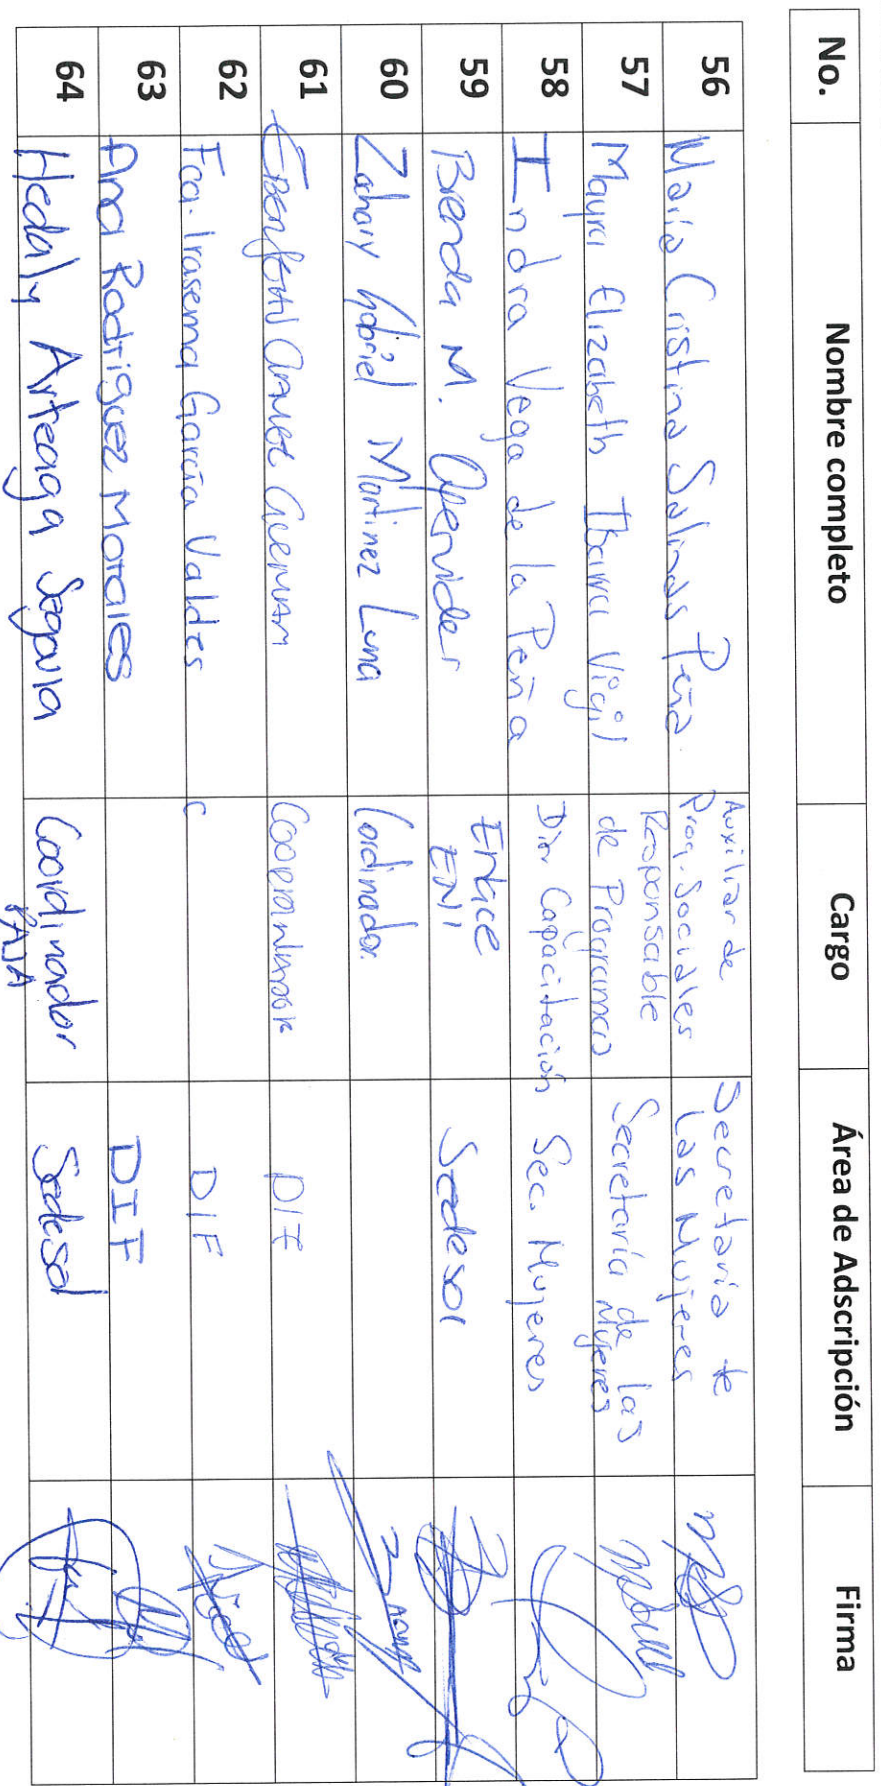 No. Nombre completo Cargo Área de Adscripción Firma
56 Maria Cristina Salinas Peña Auxiliar de Prog. Sociales Secretaria de las Mujeres
57 Mayra Elizabeth Ibarra Vigil Responsable de Programas Secretaría de las Mujeres
58 Indra Vega de la Peña Dir Capacitación Sec. Mujeres
59 Brenda M. Enlace ENI Sedesol
60 Zahary Gabriel Martinez Luna Cordinador.
61 DIF
62 Fca. Irasema García Valdes C DIF
63 Ana Rodriguez Morales DIF
64 Hedaly Arteaga Segovia Coordinador PAJA Sedesol